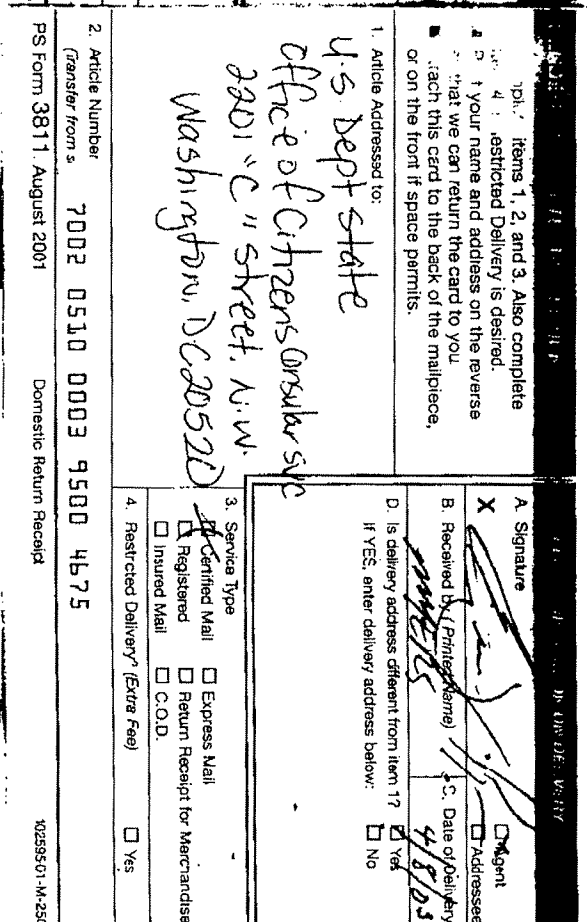 items 1, 2, and 3. Also complete
estricted Delivery is desired.
your name and address on the reverse
that we can return the card to you.
tach this card to the back of the mailpiece,
or on the front if space permits.
1. Article Addressed to:
U.S. Dept State
Office of Citizens Consular svc
2201 "C" Street, N.W.
Washington, DC 20520
2. Article Number
(Transfer from s
7002 0510 0003 9500 4675
PS Form 3811, August 2001
Domestic Return Receipt
102595-01-M-250
A. Signature
X
☐ Agent
☐ Addressee
B. Received by (Printed Name)
C. Date of Delivery
4/8/03
D. Is delivery address different from item 1? ☐ Yes
If YES, enter delivery address below: ☐ No
3. Service Type
☐ Certified Mail ☐ Express Mail
☐ Registered ☐ Return Receipt for Merchandise
☐ Insured Mail ☐ C.O.D.
4. Restricted Delivery? (Extra Fee) ☐ Yes